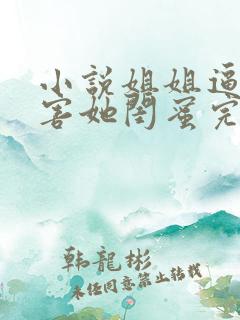 小說姐姐逼
害她閨蜜完
韩龍彬
未经同意禁止转载